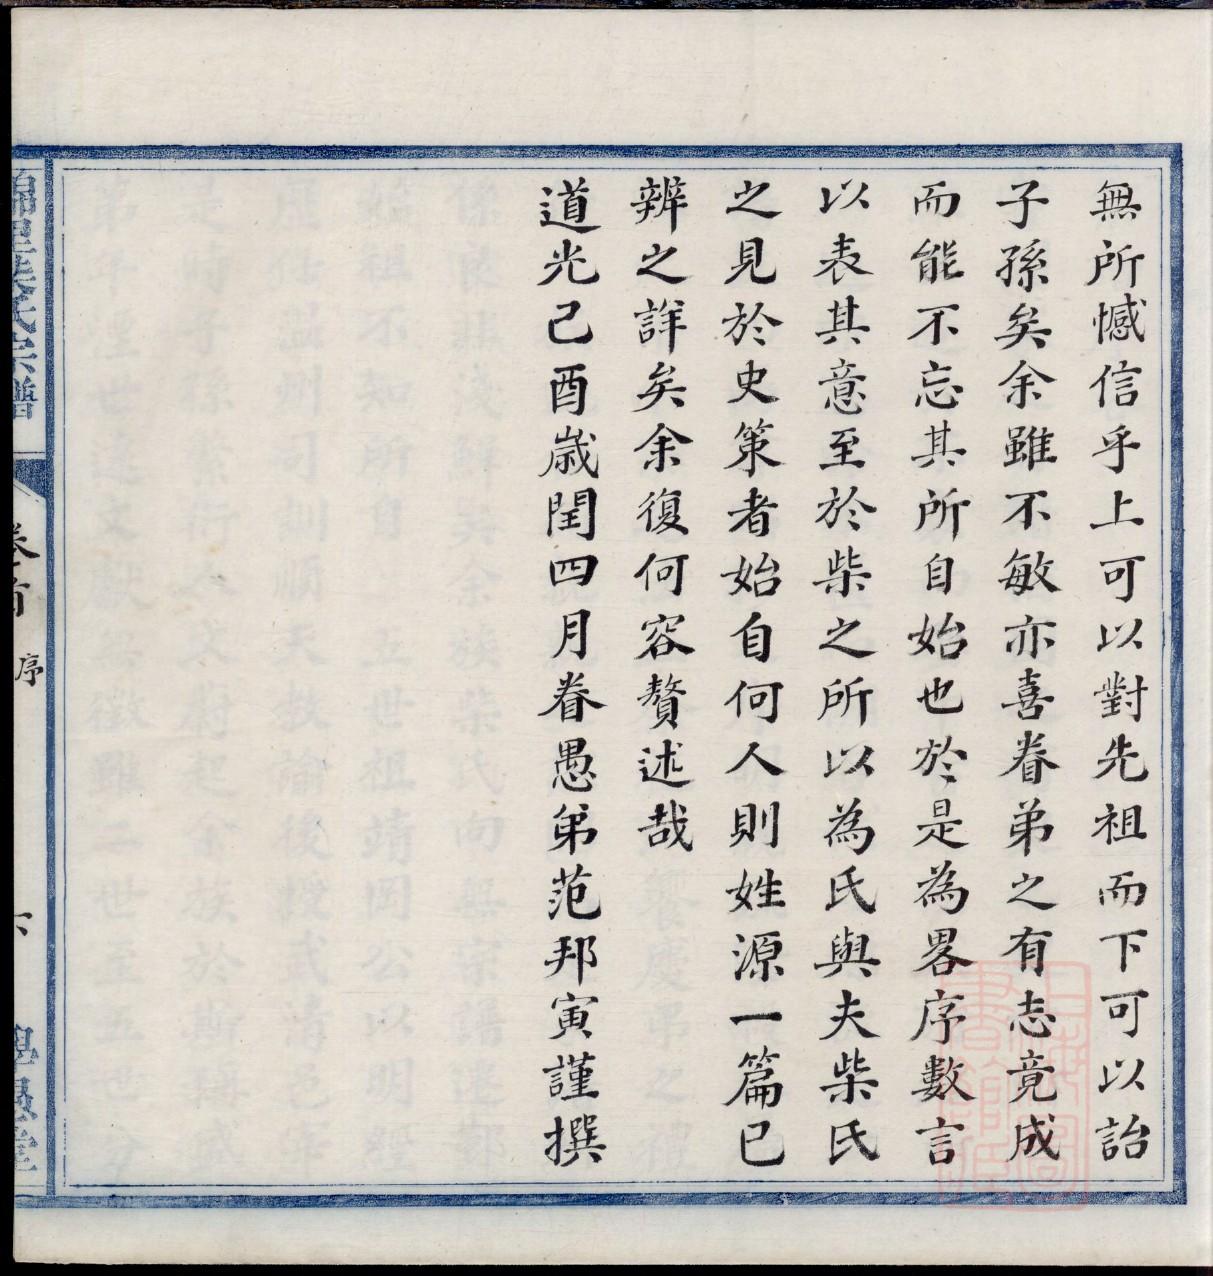 無所憾信乎上可以對先祖而下可以詒
子孫矣余雖不敏亦喜眷弟之有志竟成
而能不忘其所自始也於是為畧序數言
以表其意至於柴之所以為氏與夫柴氏
之見於史策者始自何人則姓源一篇已
辨之詳矣余復何容贅述哉
道光己酉歲閏四月眷愚弟范邦寅謹撰
氏宗譜
卷首
序